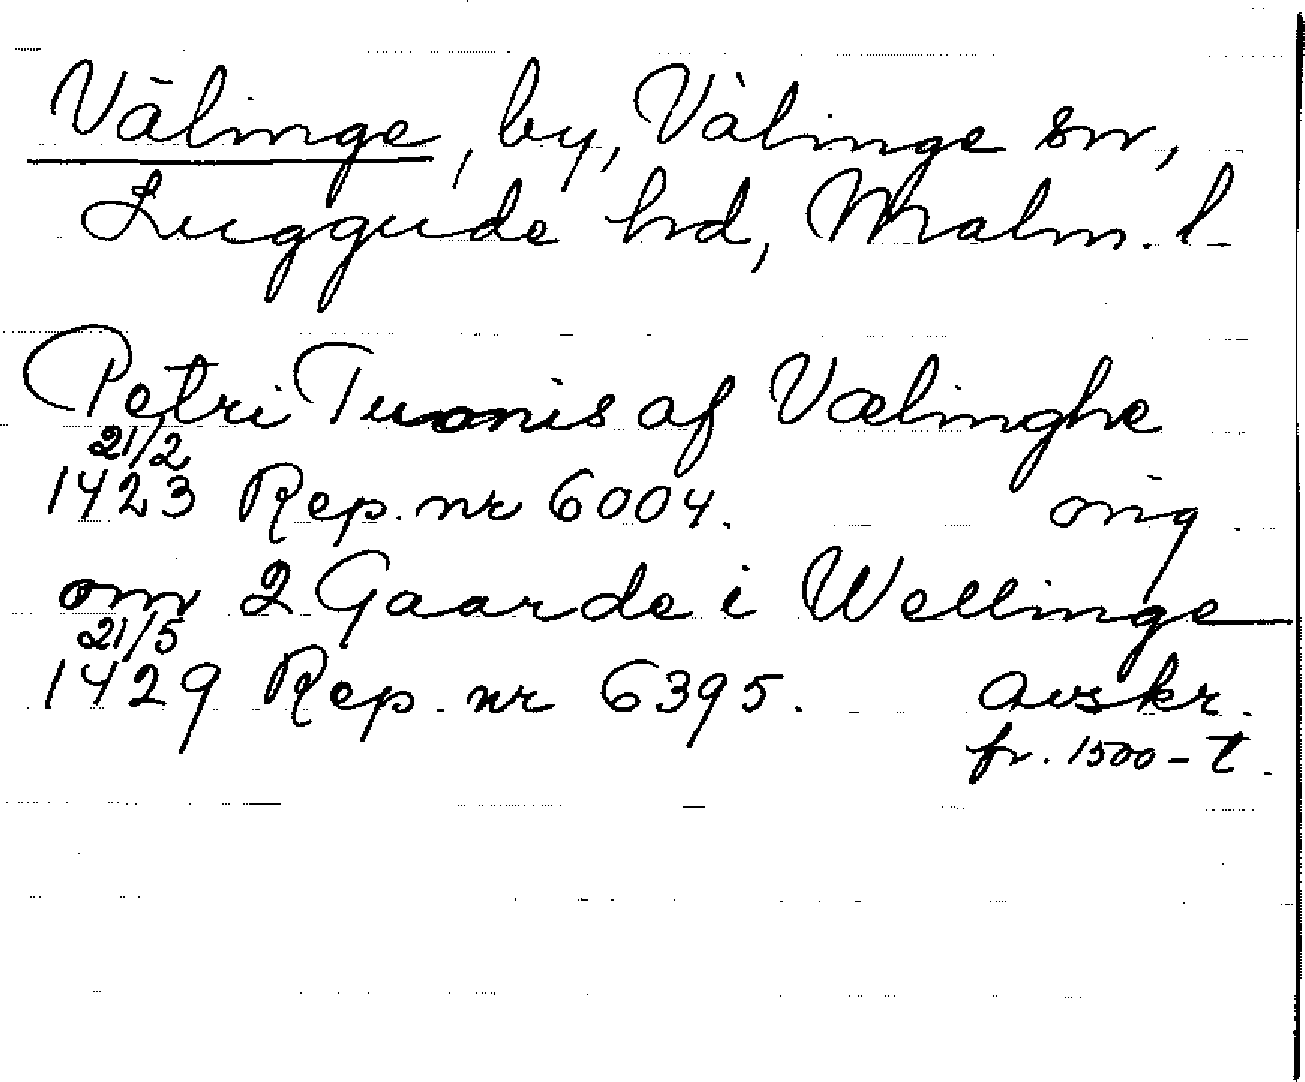 Välinge, by, Välinge sn,
Luggude hd, Malm. l
Petri Tuonis af Vælinghe
21/2
1423 Rep. nr 6004. orig.
om 2 Gaarde i Wellinge
21/5
1429 Rep. nr 6395. avskr.
fr. 1500-t.